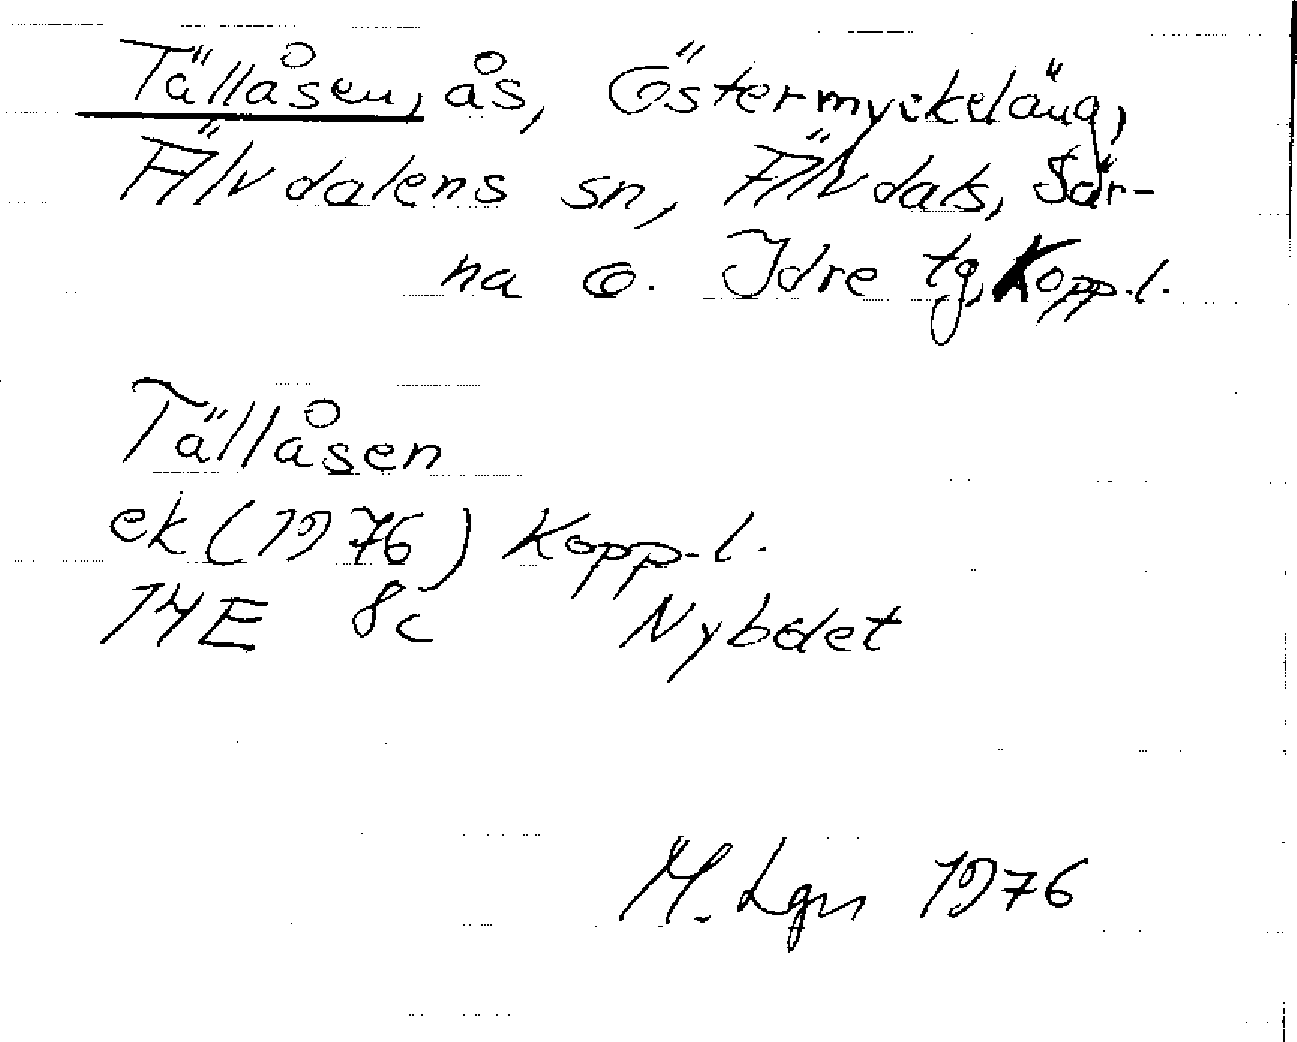 Tällåsen, ås, Östermyckeläng,
Älvdalens sn, Älvdals, Sär-
na o. Idre tg, Kopp.l.
Tällåsen
ek (1976) Kopp-l.
14E 8c Nybolet
M. Lgn 1976